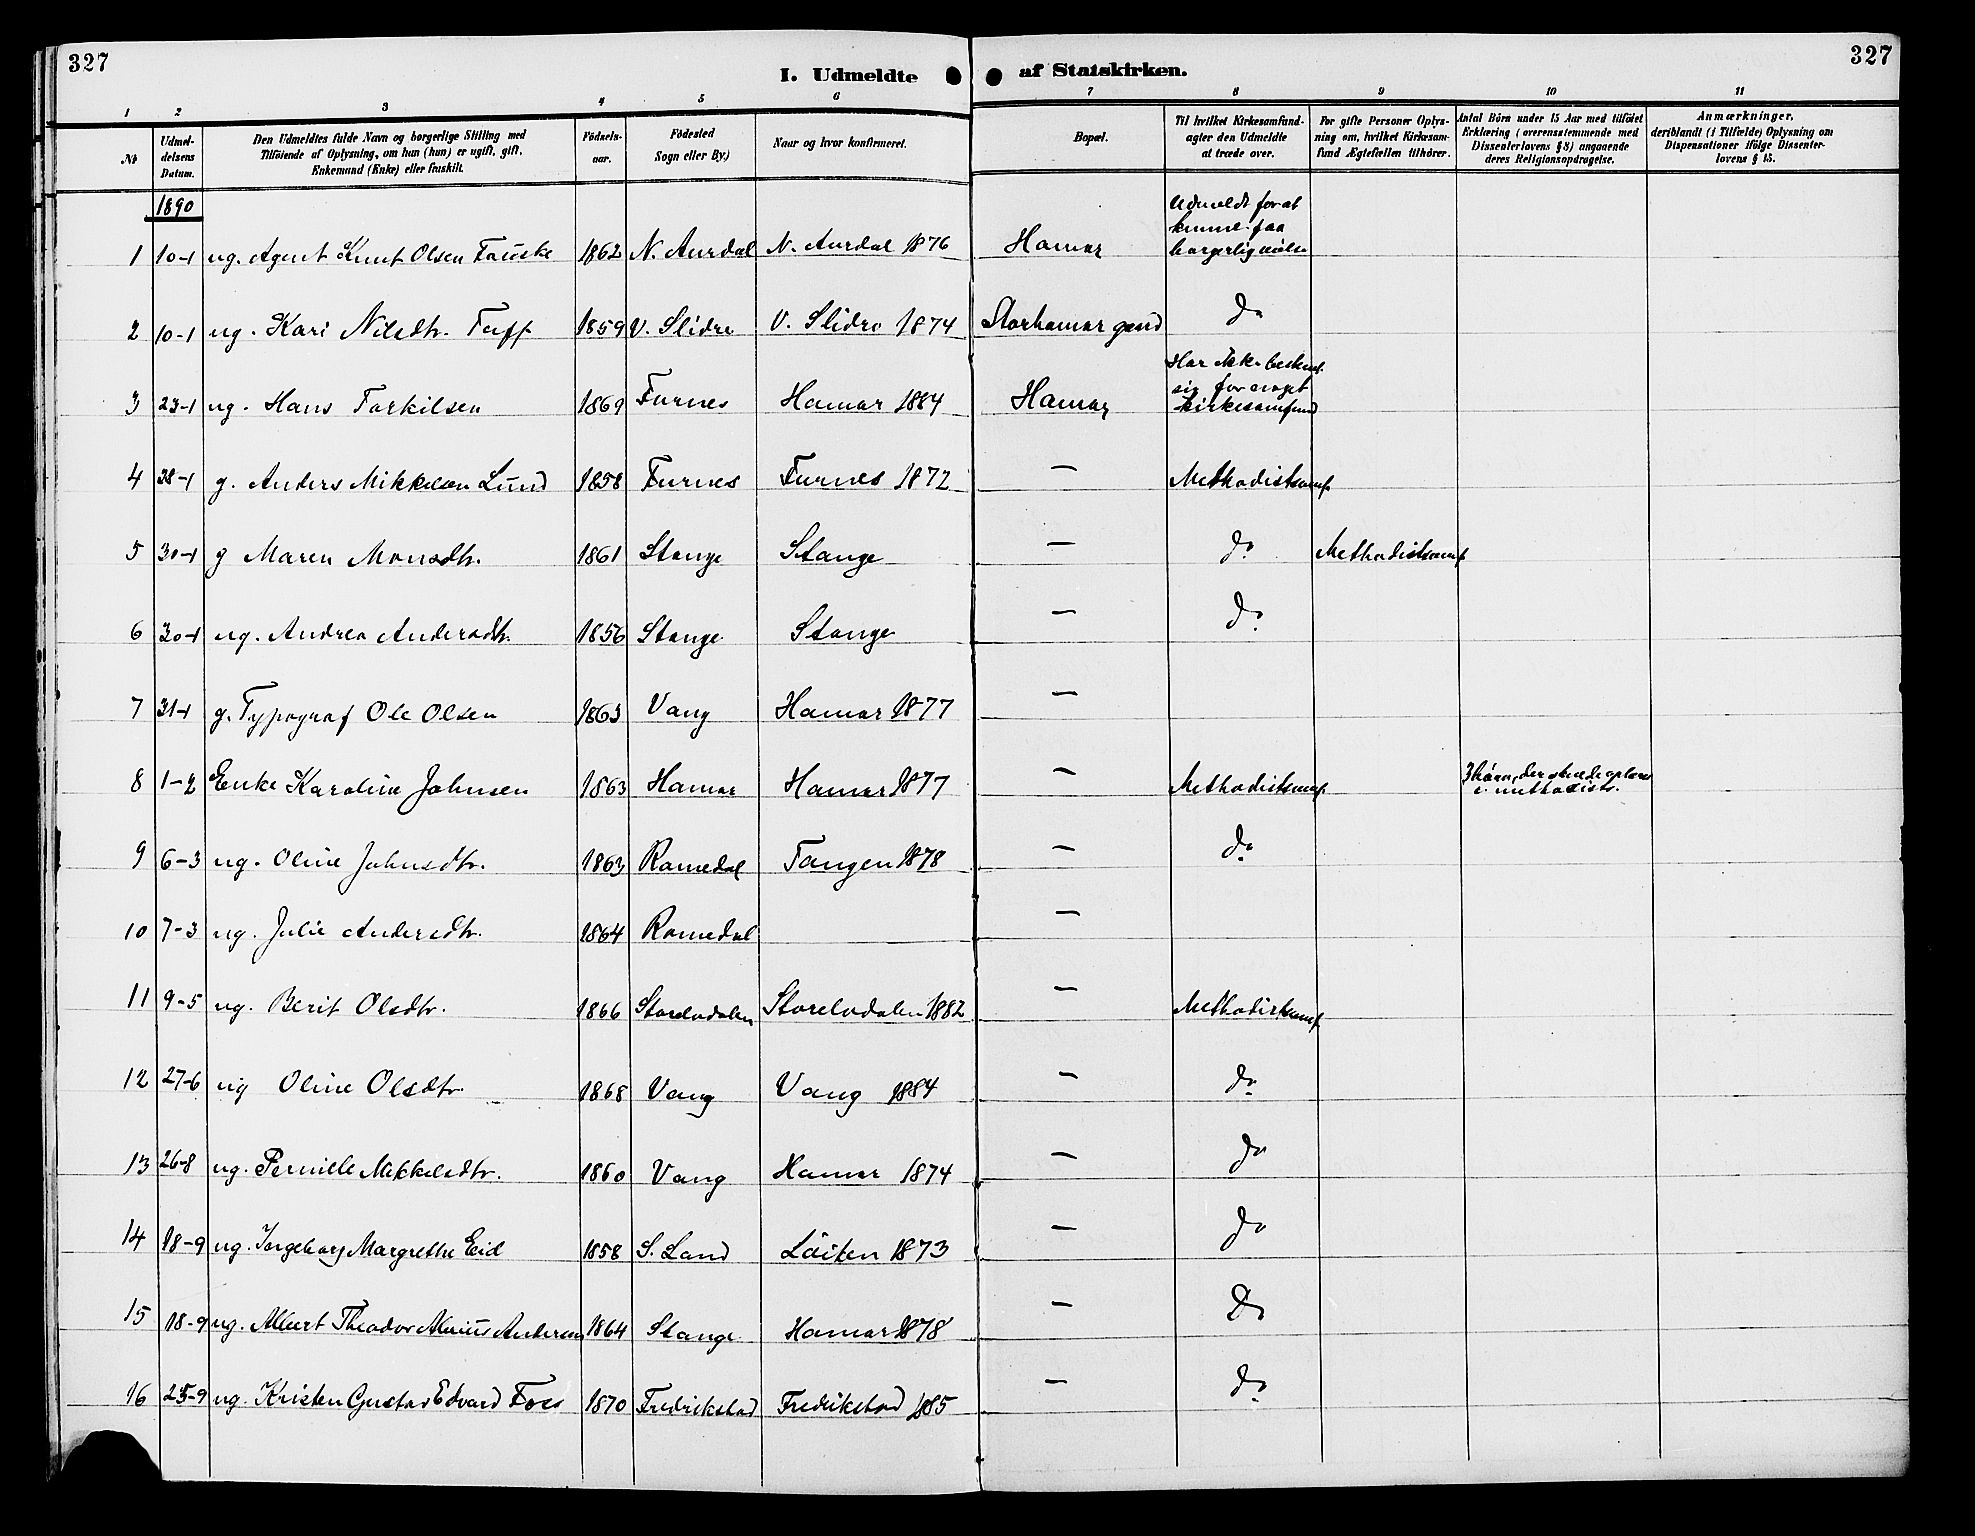 327
327
I. Udmeldte af Statskirken.
1 2 3 4 5 6 7 8 9 10 11
No
Udmel-
delsens
Datum.
Den Udmeldtes fulde Navn og borgerlige Stilling med
Tilföiende af Oplysning, om han (hun) er ugift, gift,
Enkemand (Enke) eller fraskilt.
Födsels-
aar.
Födested
Sogn eller By.)
Naar og hvor konfirmeret.
Bopæl.
Til hvilket Kirkesamfund-
agter den Udmeldte
at træde over.
For gifte Personer Oplys-
ning om, hvilket Kirkesam-
fund Ægtefællen tilhörer.
Antal Börn under 15 Aar med tilföiet
Erklæring (overensstemmende med
Dissenterlovens § 8) angaaende
deres Religionsopdragelse.
Anmærkninger,
deriblandt (i Tilfælde) Oplysning om
Dispensationer ifölge Dissenter-
lovens § 15.
1890
Udmeldt for at
kunne faa
borgerlig vielse
1 10-1 ug. Agent Knut Olsen Fauske 1862 N. Aurdal N. Aurdal 1876 Hamar
2 10-1 ug. Kari Nilsdtr. 1859 V. Slidre V. Slidre 1874 Storhamar gaard do
Har ikke bestemt
sig for noget
kirkesamfund
3 23-1 ug. Hans Torkilsen 1869 Furnes Hamar 1884 Hamar
4 28-1 g. Anders Mikkelsen Lund 1858 Furnes Furnes 1872 — Methodistsamf.
5 30-1 g Maren Monsdtr. 1861 Stange Stange — do Methodistsamf
6 30-1 ug. Andrea Andersdtr. 1856 Stange Stange — do
7 31-1 g. Typograf Ole Olsen 1863 Vang Hamar 1877 —
8 1-2 Enke Karoline Johnsen 1863 Hamar Hamar 1877 — Methodistsamf. 3 börn, der skulde oplæres
i methodists.
9 6-3 ug. Oline Johnsdtr. 1863 Romedal Tangen 1878 — do
10 7-3 ug. Julie Andersdtr. 1864 Romedal —
11 9-5 ug. Berit Olsdtr. 1866 Storelvdalen Storelvdalen 1882 — Methodistsamf
12 27-6 ug Oline Olsdtr. 1868 Vang Vang 1884 — do
13 26-8 ug. Pernille Mikkelsdtr. 1860 Vang Hamar 1874 — do
14 18-9 ug. Ingeborg Margrethe Eid 1858 S. Land Löiten 1873 — do
15 18-9 ug. Albert Theodor Marius Andersen 1864 Stange Hamar 1878 — do
16 25-9 ug. Kristen Gustav Edvard Foss 1870 Fredrikstad Fredrikstad 1885 — do